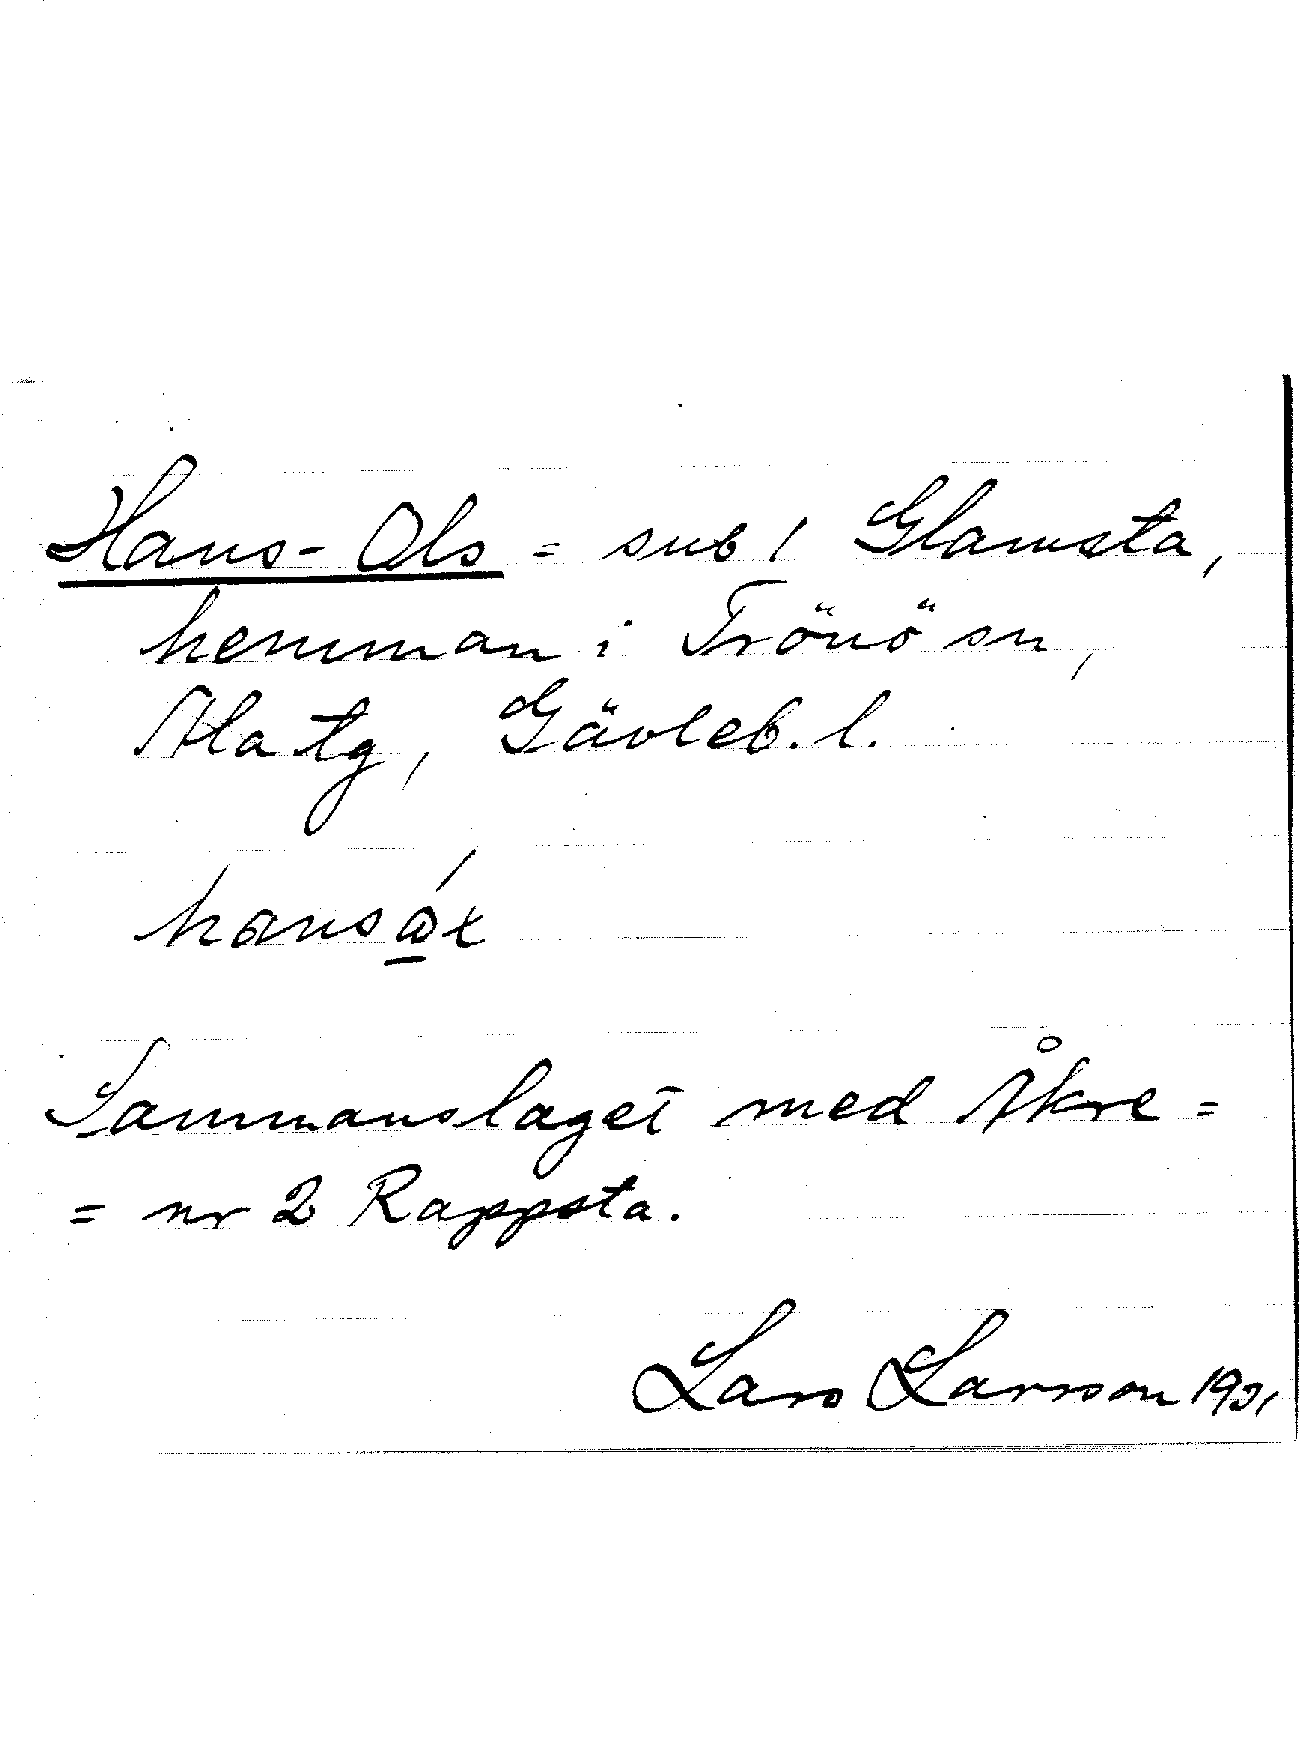 Hans-Ols = sub 1 Glamsta,
hemman i Trönö sn,
Ala tg, Gävleb. l.
Sammanslaget med Åkre =
= nr 2 Rappsta.
Lars Larsson